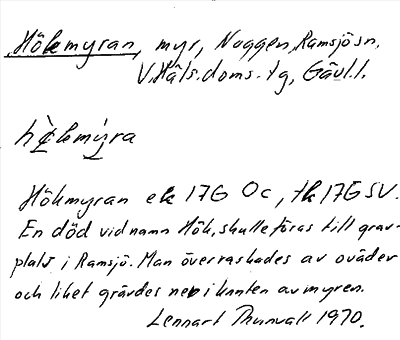 Hökmyran, myr, Noggen, Ramsjö sn,
V. Häls. doms. tg, Gävl. l.
hø̀kmýra
Hökmyran ek 17G 0c, tk 17G SV.
En död vid namn Hök, skulle föras till grav-
plats i Ramsjö. Man överraskades av oväder
och liket grävdes ner i kanten av myren.
Lennart Thunvall 1970.